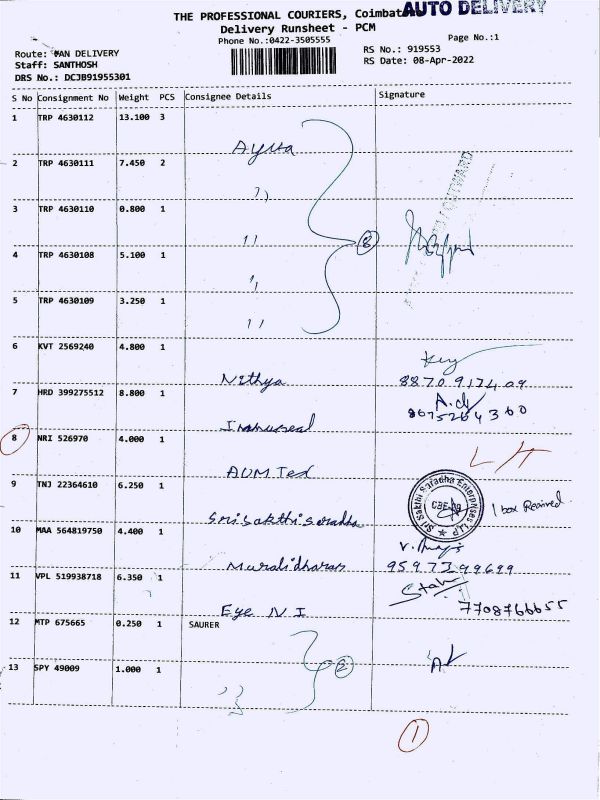 AUTO DELIVERY
THE PROFESSIONAL COURIERS, Coimbat
Delivery Runsheet - PCM
Phone No.:0422-3505555
Page No.:1
Route: VAN DELIVERY
RS No.: 919553
Staff: SANTHOSH
RS Date: 08-Apr-2022
DRS No.: DCJB91955301
S No Consignment No Weight PCS Consignee Details Signature
1 TRP 4630112 13.100 3
Ayura
2 TRP 4630111 7.450 2
"
3 TRP 4630110 0.800 1
"
8
4 TRP 4630108 5.100 1
"
5 TRP 4630109 3.250 1
"
6 KVT 2569240 4.800 1
Nithya
7 HRD 399275512 8.800 1
8 NRI 526970 4.000 1
AUM Tex
9 TNJ 22364610 6.250 1
Sri Sakthi Saradha Enterprises LLP
1 box Received
Sri Sakthi Saradha
10 MAA 564819750 4.400 1
Muralidharan
9597399699
11 VPL 519938718 6.350 1
7708766655
Eye N I
12 MTP 675665 0.250 1 SAURER
2
13 SPY 49009 1.000 1
"
1